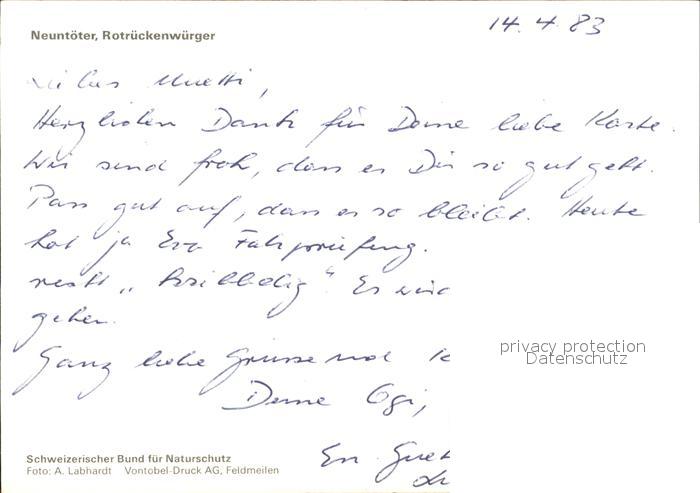 14.4.83
Neuntöter, Rotrückenwürger
Muetti,
Herzlichen Dank für Deine liebe Karte.
Wir sind froh, dass es Dir so gut geht.
Pass gut auf, dass es so bleibt. Heute
hat ja Eva Fahrprüfung.
"kribbelig" Es wird
gehen.
Ganz liebe Grüsse und
Deine Ogi,
privacy protection
Datenschutz
Schweizerischer Bund für Naturschutz
Foto: A. Labhardt Vontobel-Druck AG, Feldmeilen